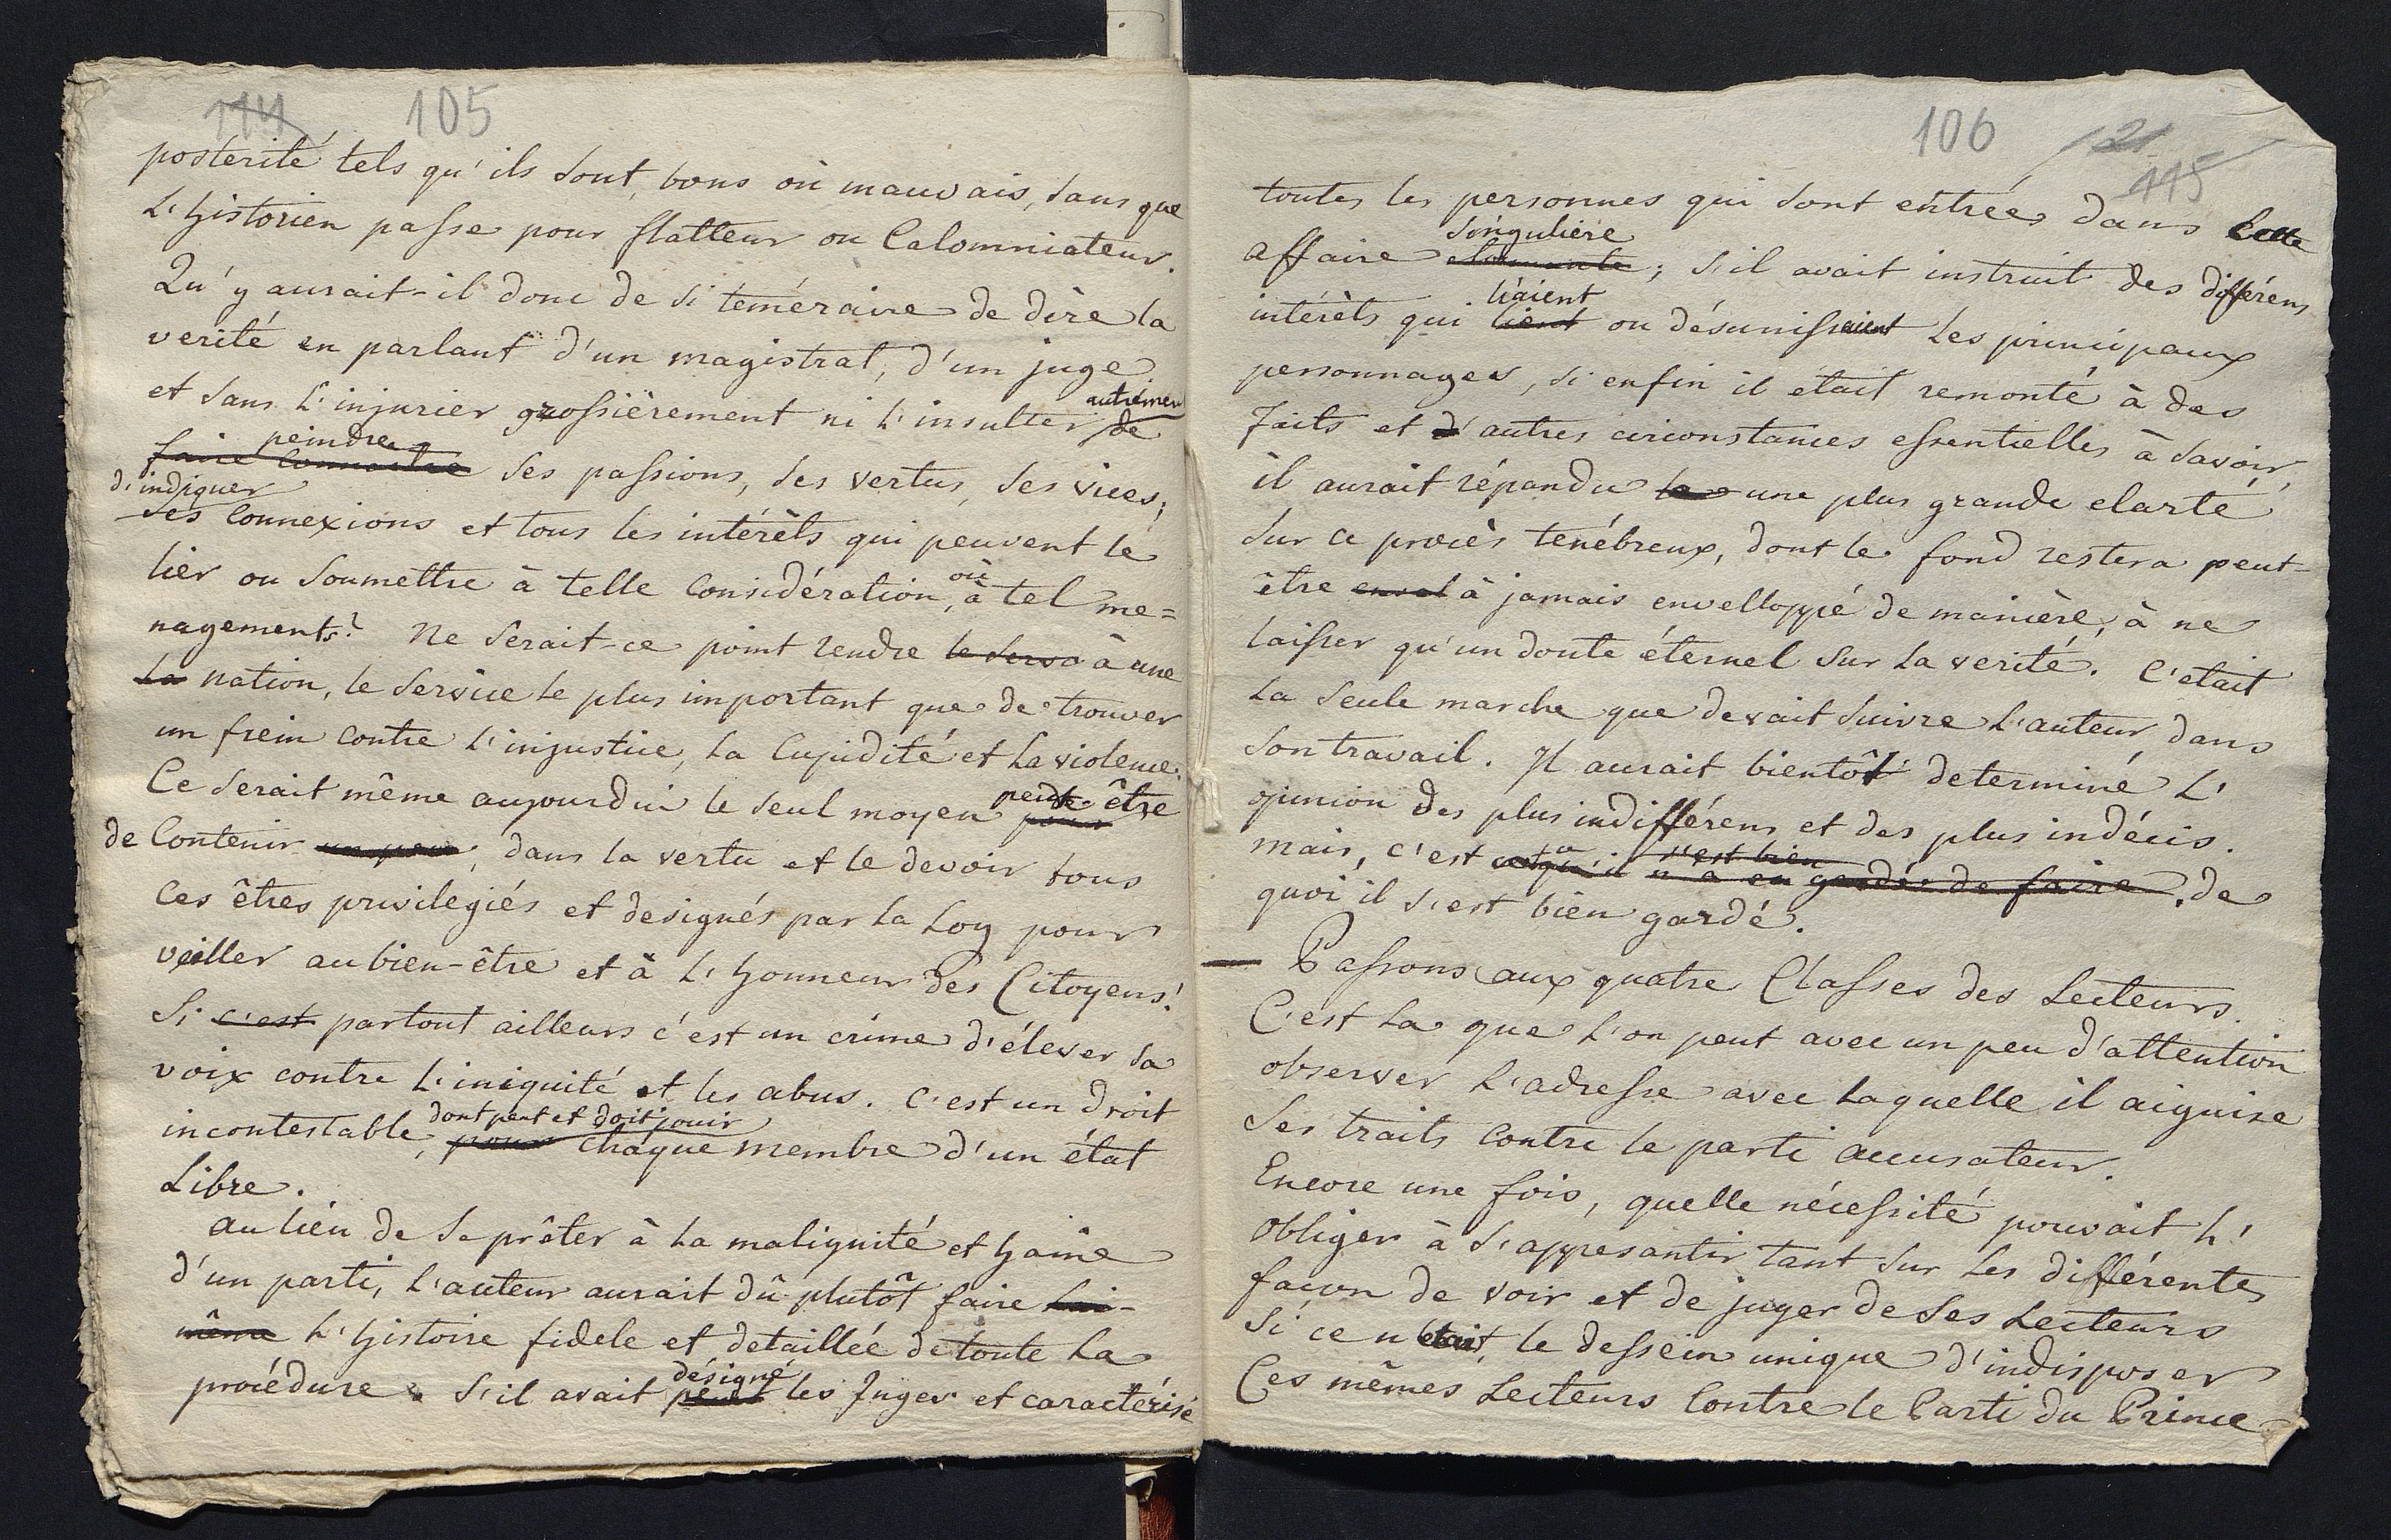 114 105
posterité tels qu'ils sont, bons où mauvais, sans que
L'historien passe pour flatteur ou Calomniateur.
Qu'y aurait-il donc de si teméraire de dire la
verité en parlant d'un magistrat, d'un juge
et sans L'injurier grossièrement ni L'insulter autrémen de
faire connoitre peindre ses passions, ses vertus, ses vices;
d'indiquer
ses Connexions et tous les intérêts qui peuvent le
lier ou soumettre à telle Considération, où à tel me=
nagements? Ne serait-ce point rendre le servo à une
La nation, le service le plus important que de trouver
un frein contre L'injustice, La Cupidité et La violence.
Ce serait même aujourdui le seul moyen pour peut-être
de Contenir un peu, dans la vertu et le devoir tous
Ces êtres privilégiés et designés par La Loy pour
veiller au bien-être et à L'honneur des Citoyens!
Si c'est partout ailleurs c'est un crime d'élever sa
voix contre L'iniquité et les abus. C'est un droit
incontestable, pour dont peut et doit jouir chaque membre d'un état
Libre.
au lieu de se prêter à La malignité et haine
d'un parti, L'auteur aurait dû plutôt faire Lui-
même L'histoire fidele et detaillée de toute La
procédure. S'il avait peint désigné les Juges et caractérisé
106 2 115
toutes les personnes qui sont entrées dans Cette
affaire singulière; s'il avait instruit des différens
intérêts qui lient liaient ou désunissaient Les principaux
personnages, si enfin il était remonté à des
faits et d'autres circonstances essentielles à savoir,
il aurait répandu la une plus grande clarté
sur ce procès tenébreux, dont le fond restera peut-
être à jamais envelloppé de manière, à ne
laisser qu'un doute éternel sur La verité. C'était
La seule marche que devait suivre L'auteur dans
son travail. Il aurait bientôt determiné L'
opinion des plus indifférens et des plus indécis.
mais, c'est ce qu'il n'a eu garde de faire s'est bien. de
quoi il s'est bien gardé.
— Passons aux quatre Classes des Lecteurs.
C'est La que L'on peut avec un peu d'attention
observer L'adresse avec Laquelle il aiguise
Ses traits contre le parti accusateur.
Encore une fois, quelle nécessité pouvait L'
obliger à s'appesantir tant sur Les différentes
façon de voir et de juger de ses Lecteurs
si ce n'était, le dessein unique d'indisposer
Ces mêmes Lecteurs Contre le Parti du Prince